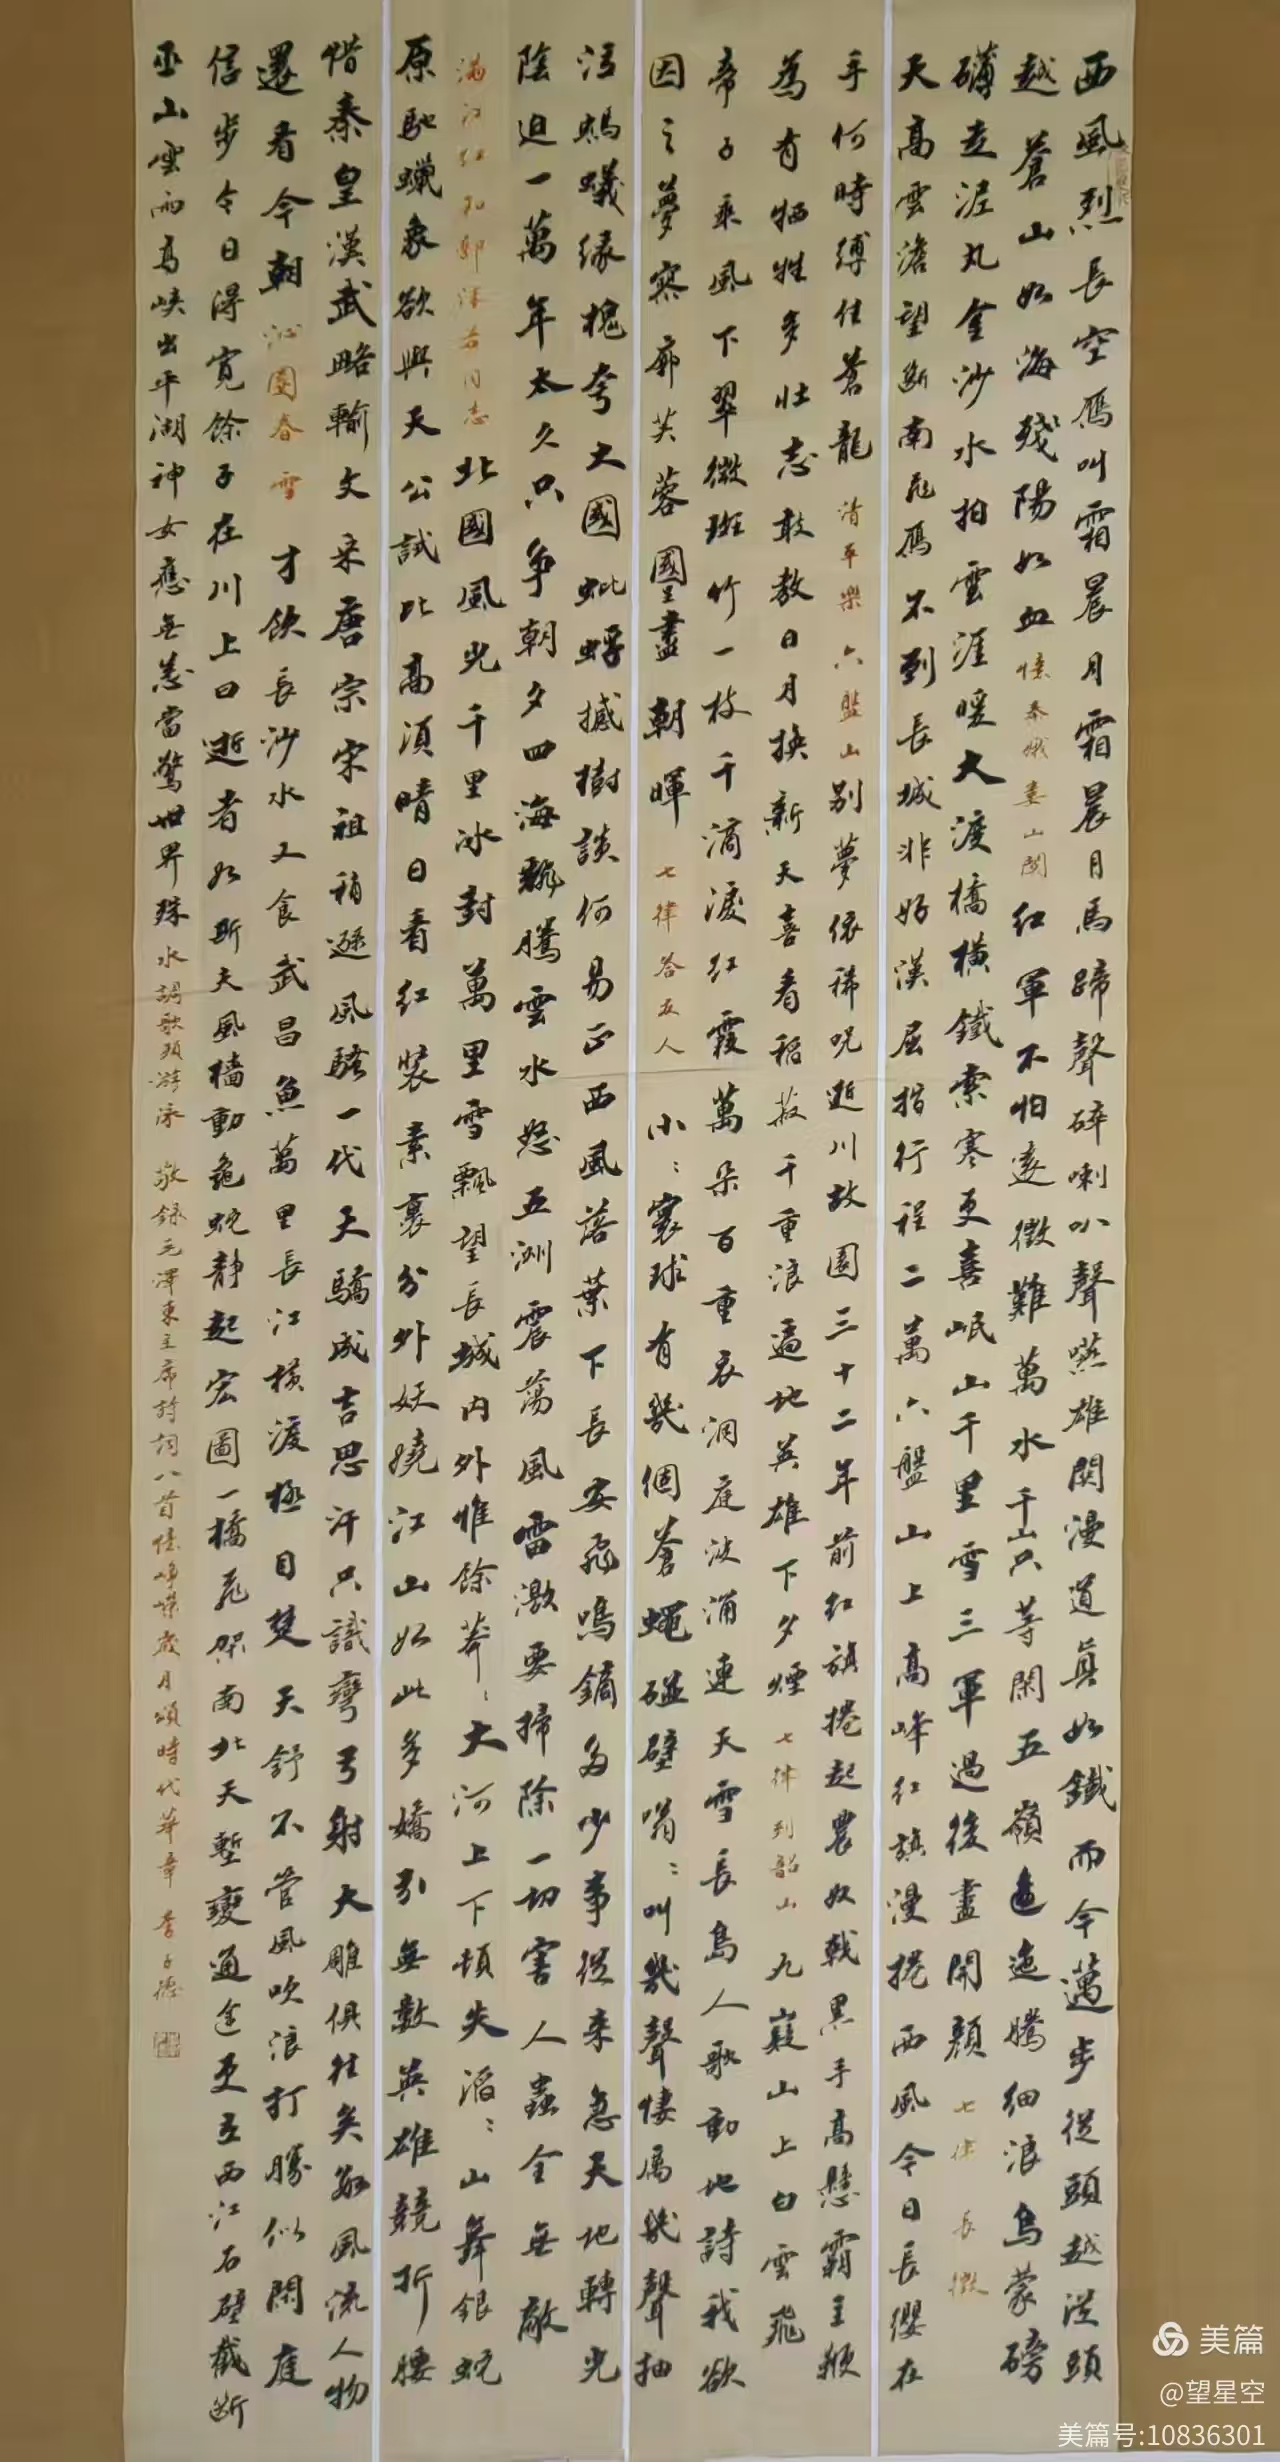 西風烈長空雁叫霜晨月霜晨月馬蹄聲碎喇叭聲咽雄關漫道真如鐵而今邁步從頭越從頭
越蒼山如海殘陽如血憶秦娥婁山關紅軍不怕遠徵難萬水千山只等閑五嶺逶迤騰細浪烏蒙磅
礴走泥丸金沙水拍雲涯暖大渡橋橫鐵索寒更喜岷山千里雪三軍過後盡開顏七律長徵
天高雲澹望斷南飛雁不到長城非好漢屈指行程二萬六盤山上高峰紅旗漫捲西風今日長纓在
手何時縛住蒼龍清平樂六盤山別夢依稀咒逝川故園三十二年前紅旗捲起農奴戟黑手高懸霸主鞭
為有犧牲多壯志敢教日月換新天喜看稻菽千重浪遍地英雄下夕煙七律到韶山九嶷山上白雲飛
帝子乘風下翠微斑竹一枝千滴淚紅霞萬朵百重衣洞庭波涌連天雪長島人歌動地詩我欲
因之夢寥廓芙蓉國里盡朝暉七律答友人小：寰球有幾個蒼蠅碰壁嗡：叫幾聲悽厲幾聲抽
泣螞蟻緣槐夸大國蚍蜉撼樹談何易正西風落葉下長安飛鳴鏑多少事從來急天地轉光
陰迫一萬年太久只爭朝夕四海翻騰雲水怒五洲震蕩風雷激要掃除一切害人蟲全無敵
滿江紅和郭沫若同志北國風光千里冰封萬里雪飄望長城內外惟餘莽：大河上下頓失滔：山舞銀蛇
原馳蠟象欲與天公試比高須晴日看紅裝素裹分外妖嬈江山如此多嬌引無數英雄競折腰
惜秦皇漢武略輸文采唐宗宋祖稍遜風騷一代天驕成吉思汗只識彎弓射大雕俱往矣數風流人物
還看今朝沁園春雪才飲長沙水又食武昌魚萬里長江橫渡極目楚天舒不管風吹浪打勝似閑庭
信步今日得寬餘子在川上曰逝者如斯夫風檣動龜蛇靜起宏圖一橋飛架南北天塹變通途更立西江石壁截斷
巫山雲雨高峽出平湖神女應無恙當驚世界殊水調歌頭游泳敬錄毛澤東主席詩詞八首憶崢嶸歲月頌時代華章李子德
美篇
@望星空
美篇号:10836301